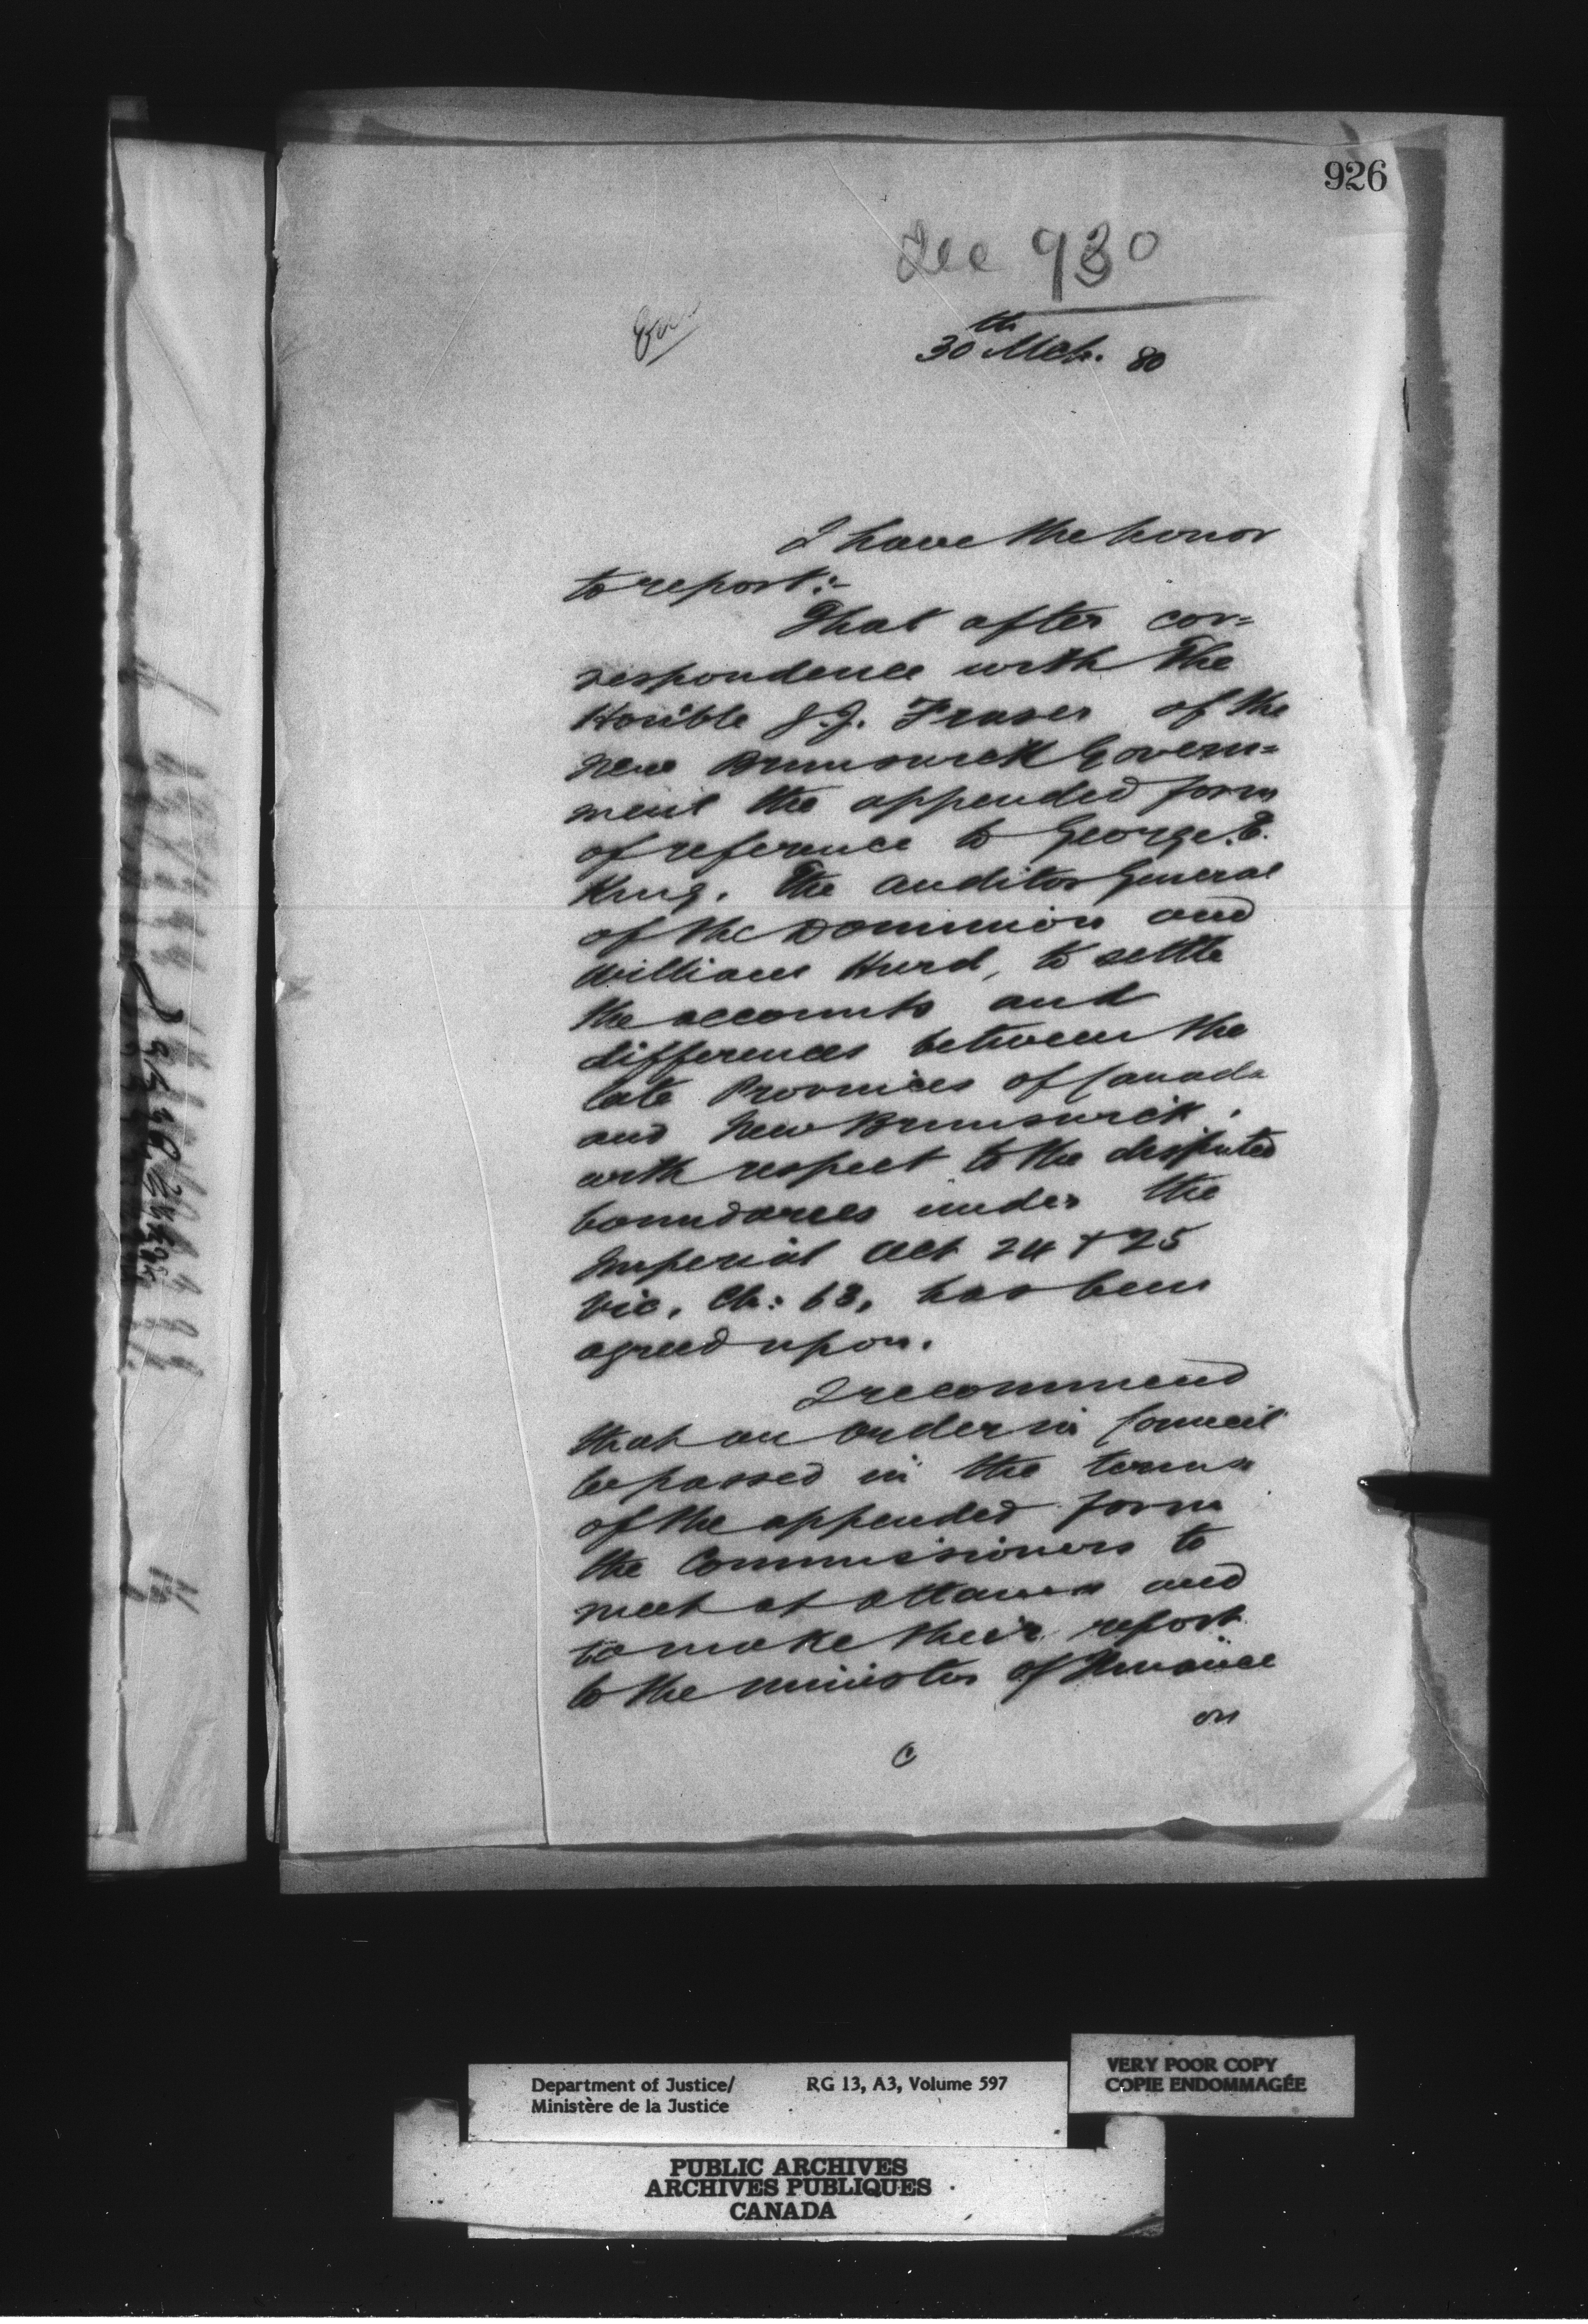 926
See 930
30th Mch. 80
I have the honor
to report:-
That after cor=
respondence with The
Honble J.J. Fraser of the
New Brunswick Govern=
ment the appended form
of reference to George. E.
King. The Auditor General
of the Dominion and
William Hurd, to settle
the accounts and
differences between the
late Provinces of Canada
and New Brunswick,
with respect to the disputed
boundaries under the
Imperial Act 24 & 25
Vic. Ch: 63, has been
agreed upon.
I recommend
that an Order in Council
be passed in the terms
of the appended form
the Commissioners to
meet at Ottawa and
to make their report
to the Minister of Finance
on
C
Department of Justice/ RG 13, A3, Volume 597
Ministère de la Justice
VERY POOR COPY
COPIE ENDOMMAGÉE
PUBLIC ARCHIVES
ARCHIVES PUBLIQUES
CANADA